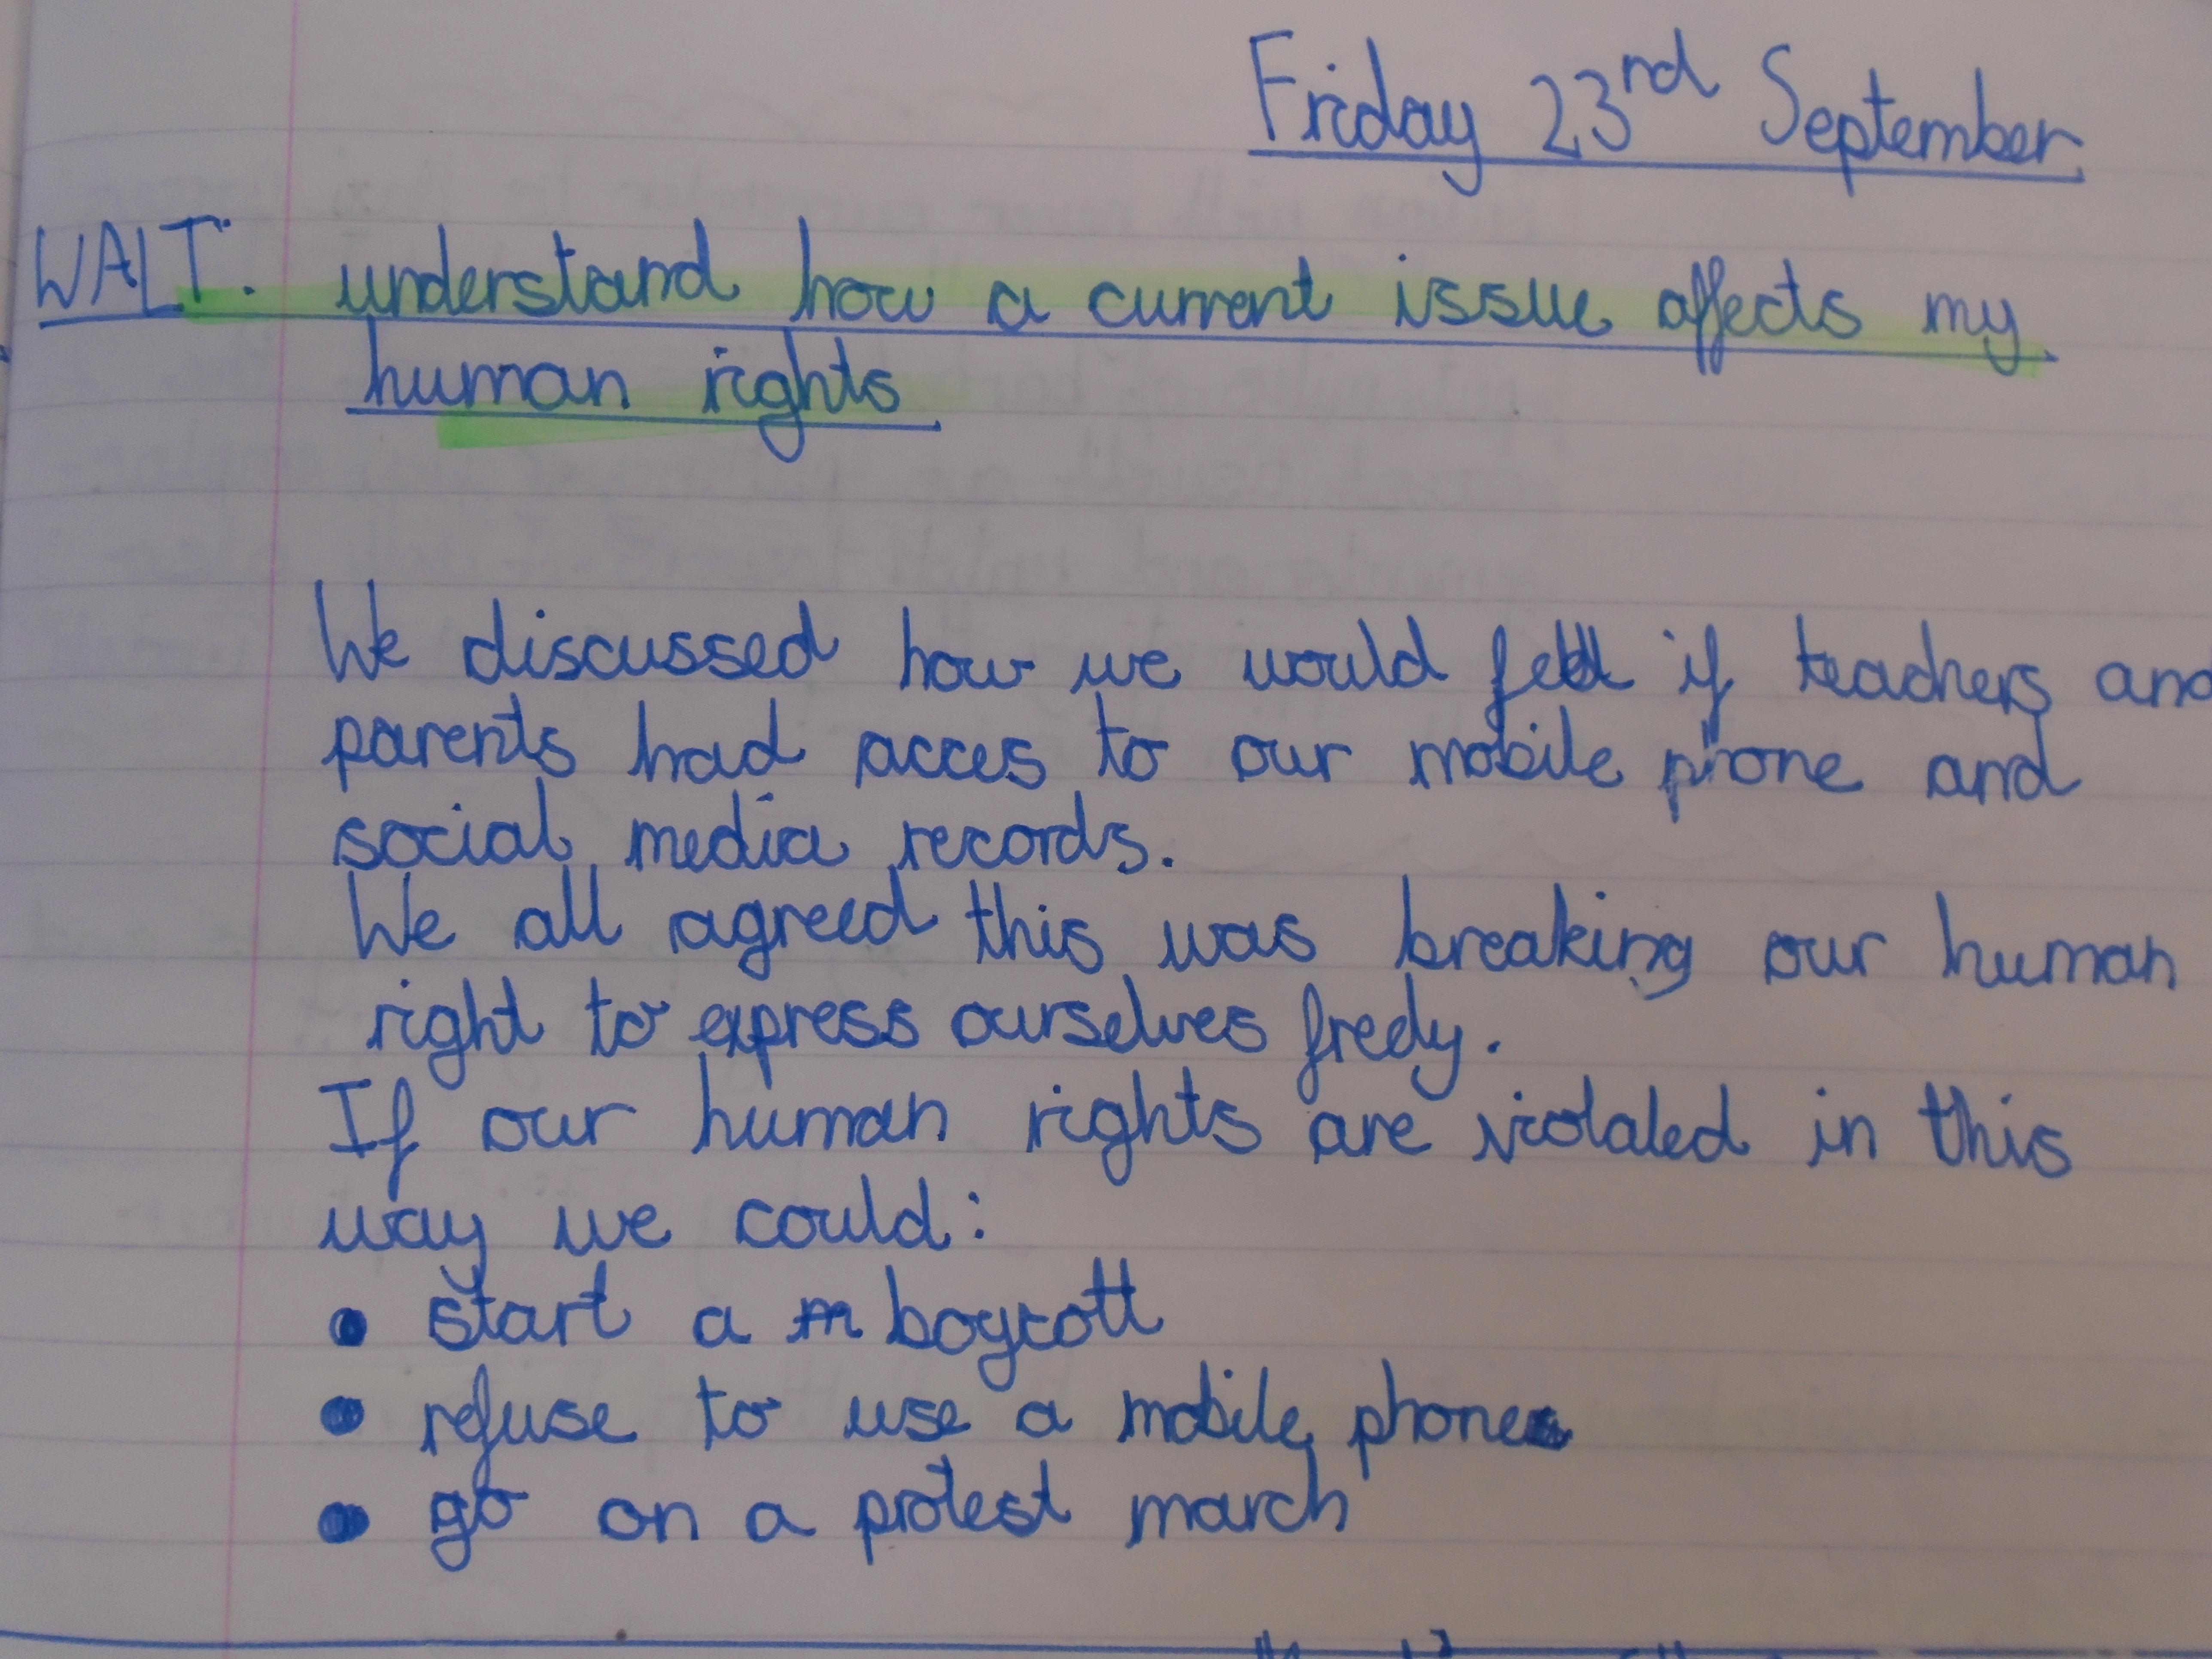 Friday 23rd September
WALT: understand how a current issue affects my
human rights
We discussed how we would feel if teachers and
parents had acces to our mobile phone and
social media records.
We all agreed this was breaking our human
right to express ourselves fredy.
If our human rights are violated in this
way we could:
• start a boycott
• refuse to use a mobile phone
• go on a protest march